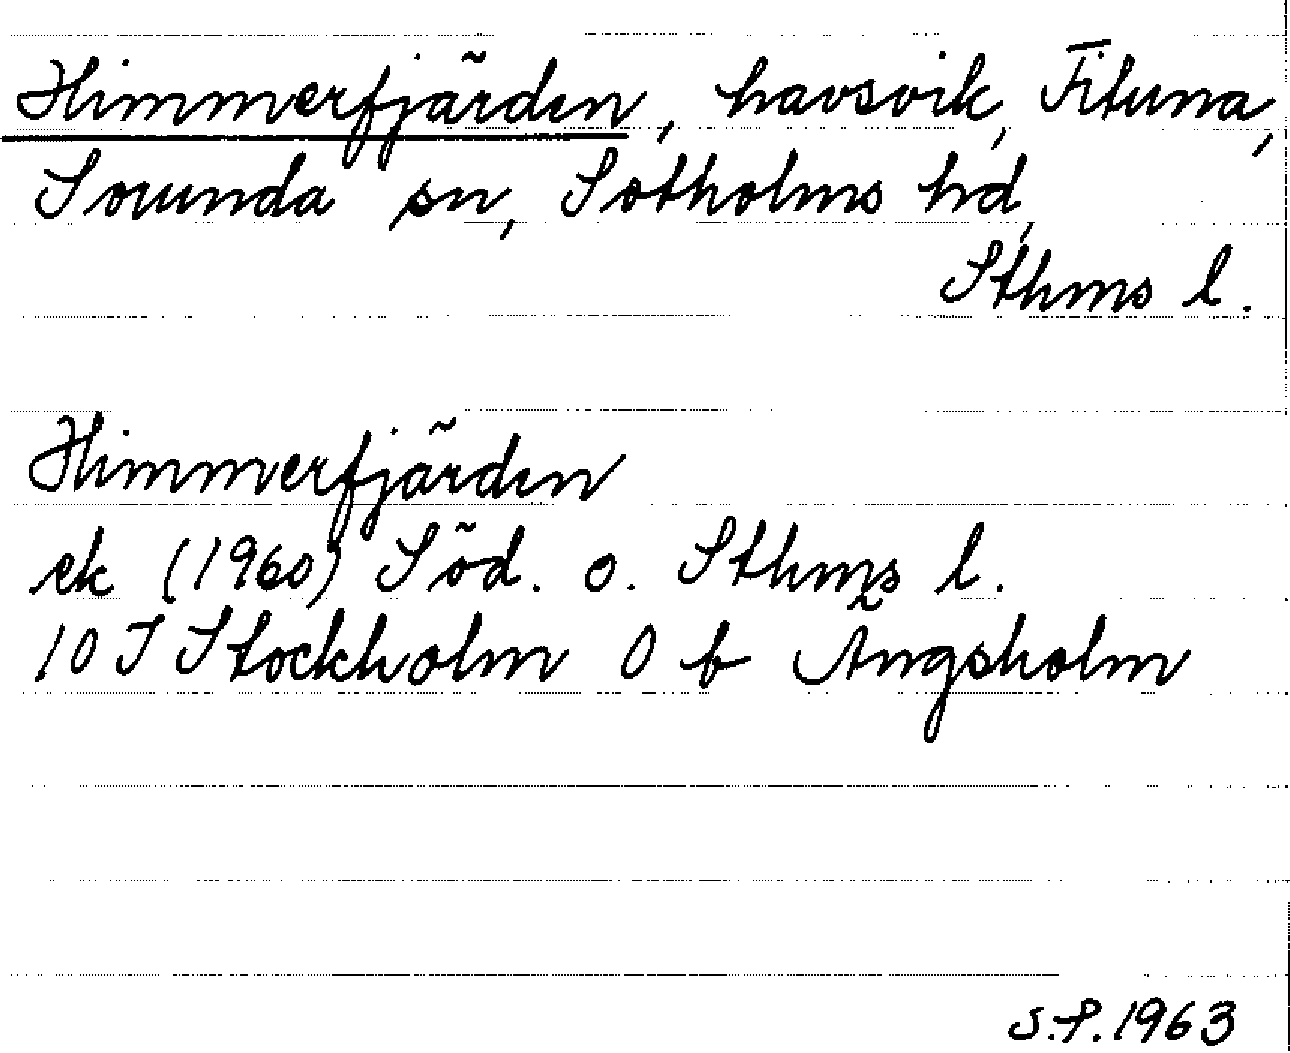 Himmerfjärden, havsvik, Fituna,
Sorunda sn, Sotholms hd,
Sthms l.
Himmerfjärden
ek (1960) Söd. o. Sthms l.
10 I Stockholm 0 b Ängsholm
S.P. 1963